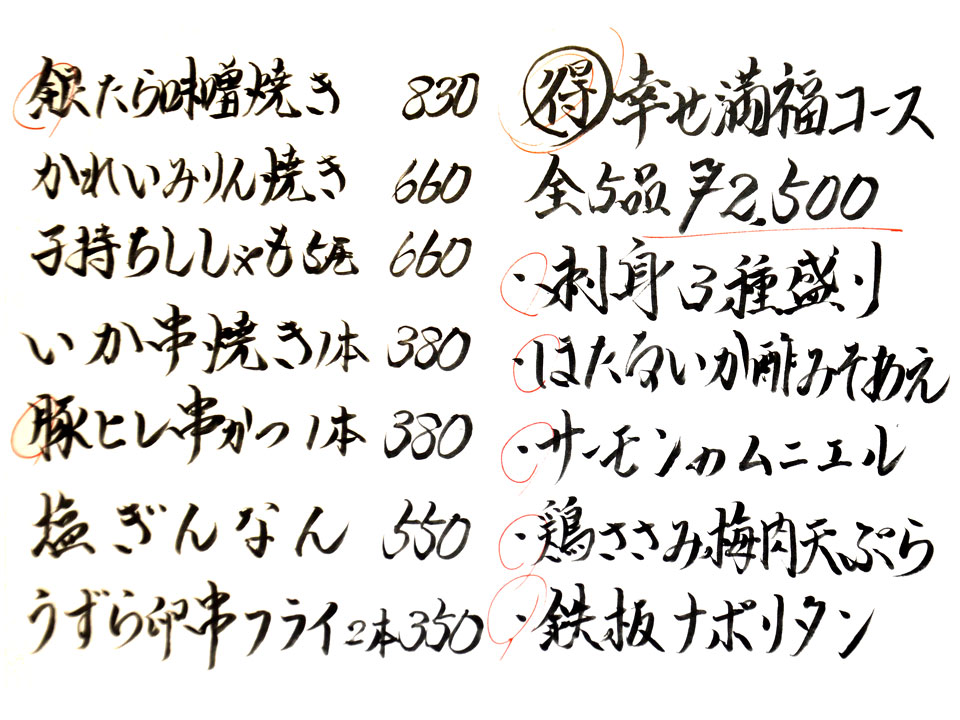 銀たら味噌焼き 830
かれいみりん焼き 660
子持ちししゃも5尾 660
いか串焼き1本 380
豚ヒレ串かつ1本 380
塩ぎんなん 550
うずら卵串フライ2本 350
得 幸せ満福コース
全5品 ¥2,500
・刺身3種盛り
・ほたるいか酢みそあえ
・サーモンのムニエル
・鶏ささみ梅肉天ぷら
・鉄板ナポリタン